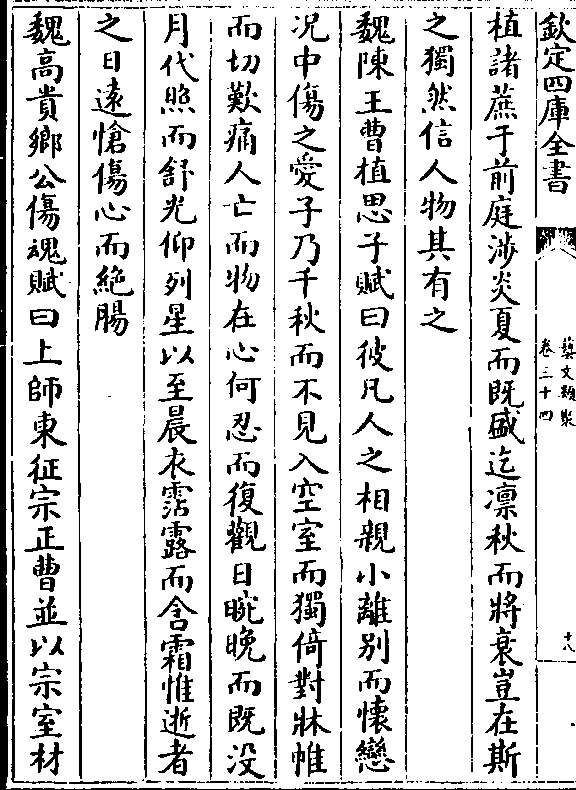 欽定四庫全書
藝文類聚
卷三十四
十八
植諸蔗于前庭涉炎夏而既盛迄凛秋而將衰豈在斯
之獨然信人物其有之
魏陳王曹植思子賦曰彼凡人之相親小離别而懷戀
况中傷之愛子乃千秋而不見入空室而獨倚對牀帷
而切歎痛人亡而物在心何忍而復觀日晼晚而既没
月代照而舒光仰列星以至晨衣霑露而含霜惟逝者
之日遠愴傷心而絶腸
魏高貴鄉公傷魂賦曰上師東征宗正曹並以宗室材